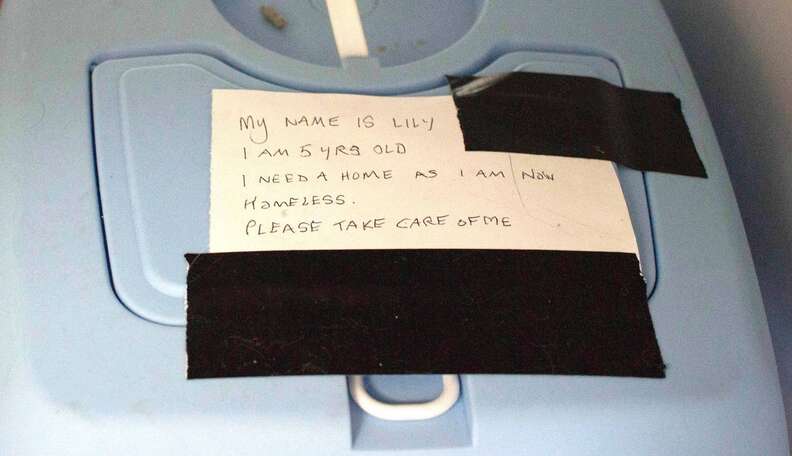 My NAME IS LILY
I AM 5 YRS OLD
I NEED A HOME AS I AM NOW
HOMELESS.
PLEASE TAKE CARE OF ME